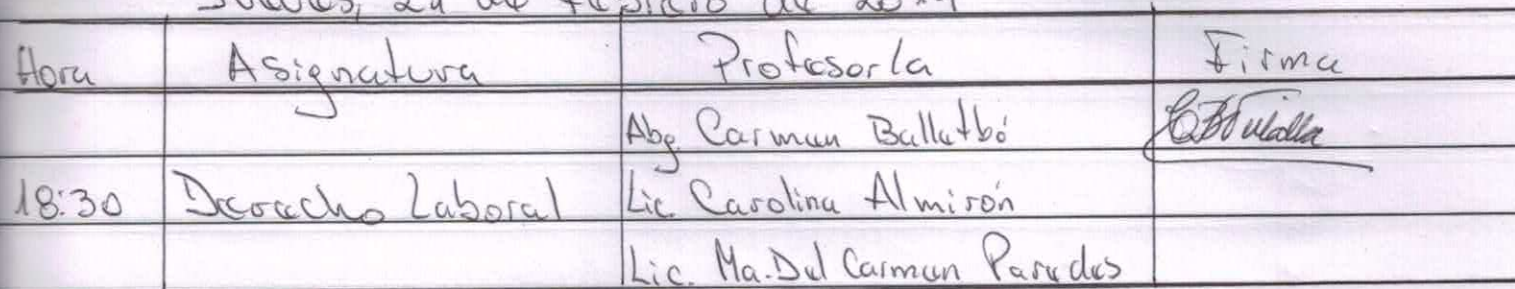 Hora Asignatura Profesor/a Firma
Abg. Carmen Balletbó
18:30 Derecho Laboral Lic. Carolina Almirón
Lic. Ma. Del Carmen Paredes